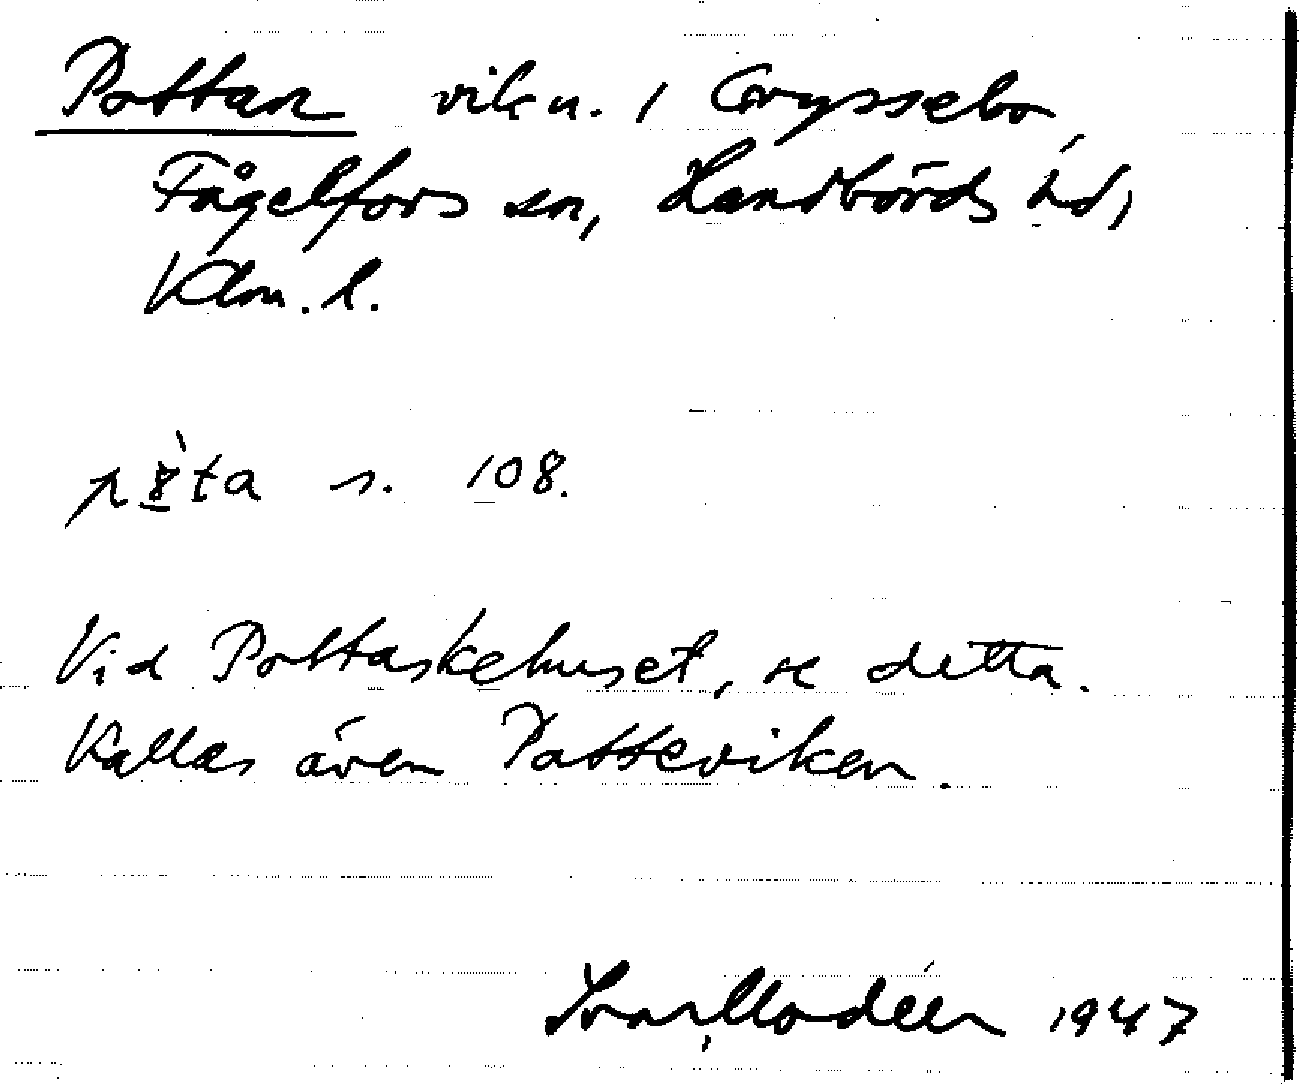 Pottan vik n. i Gryssebo,
Fågelfors sn, Handbörds hd,
Klm. l.
s. 108.
Vid Pottaskehuset, se detta.
Kallas även Potteviken.
Ivar Modéer 1947